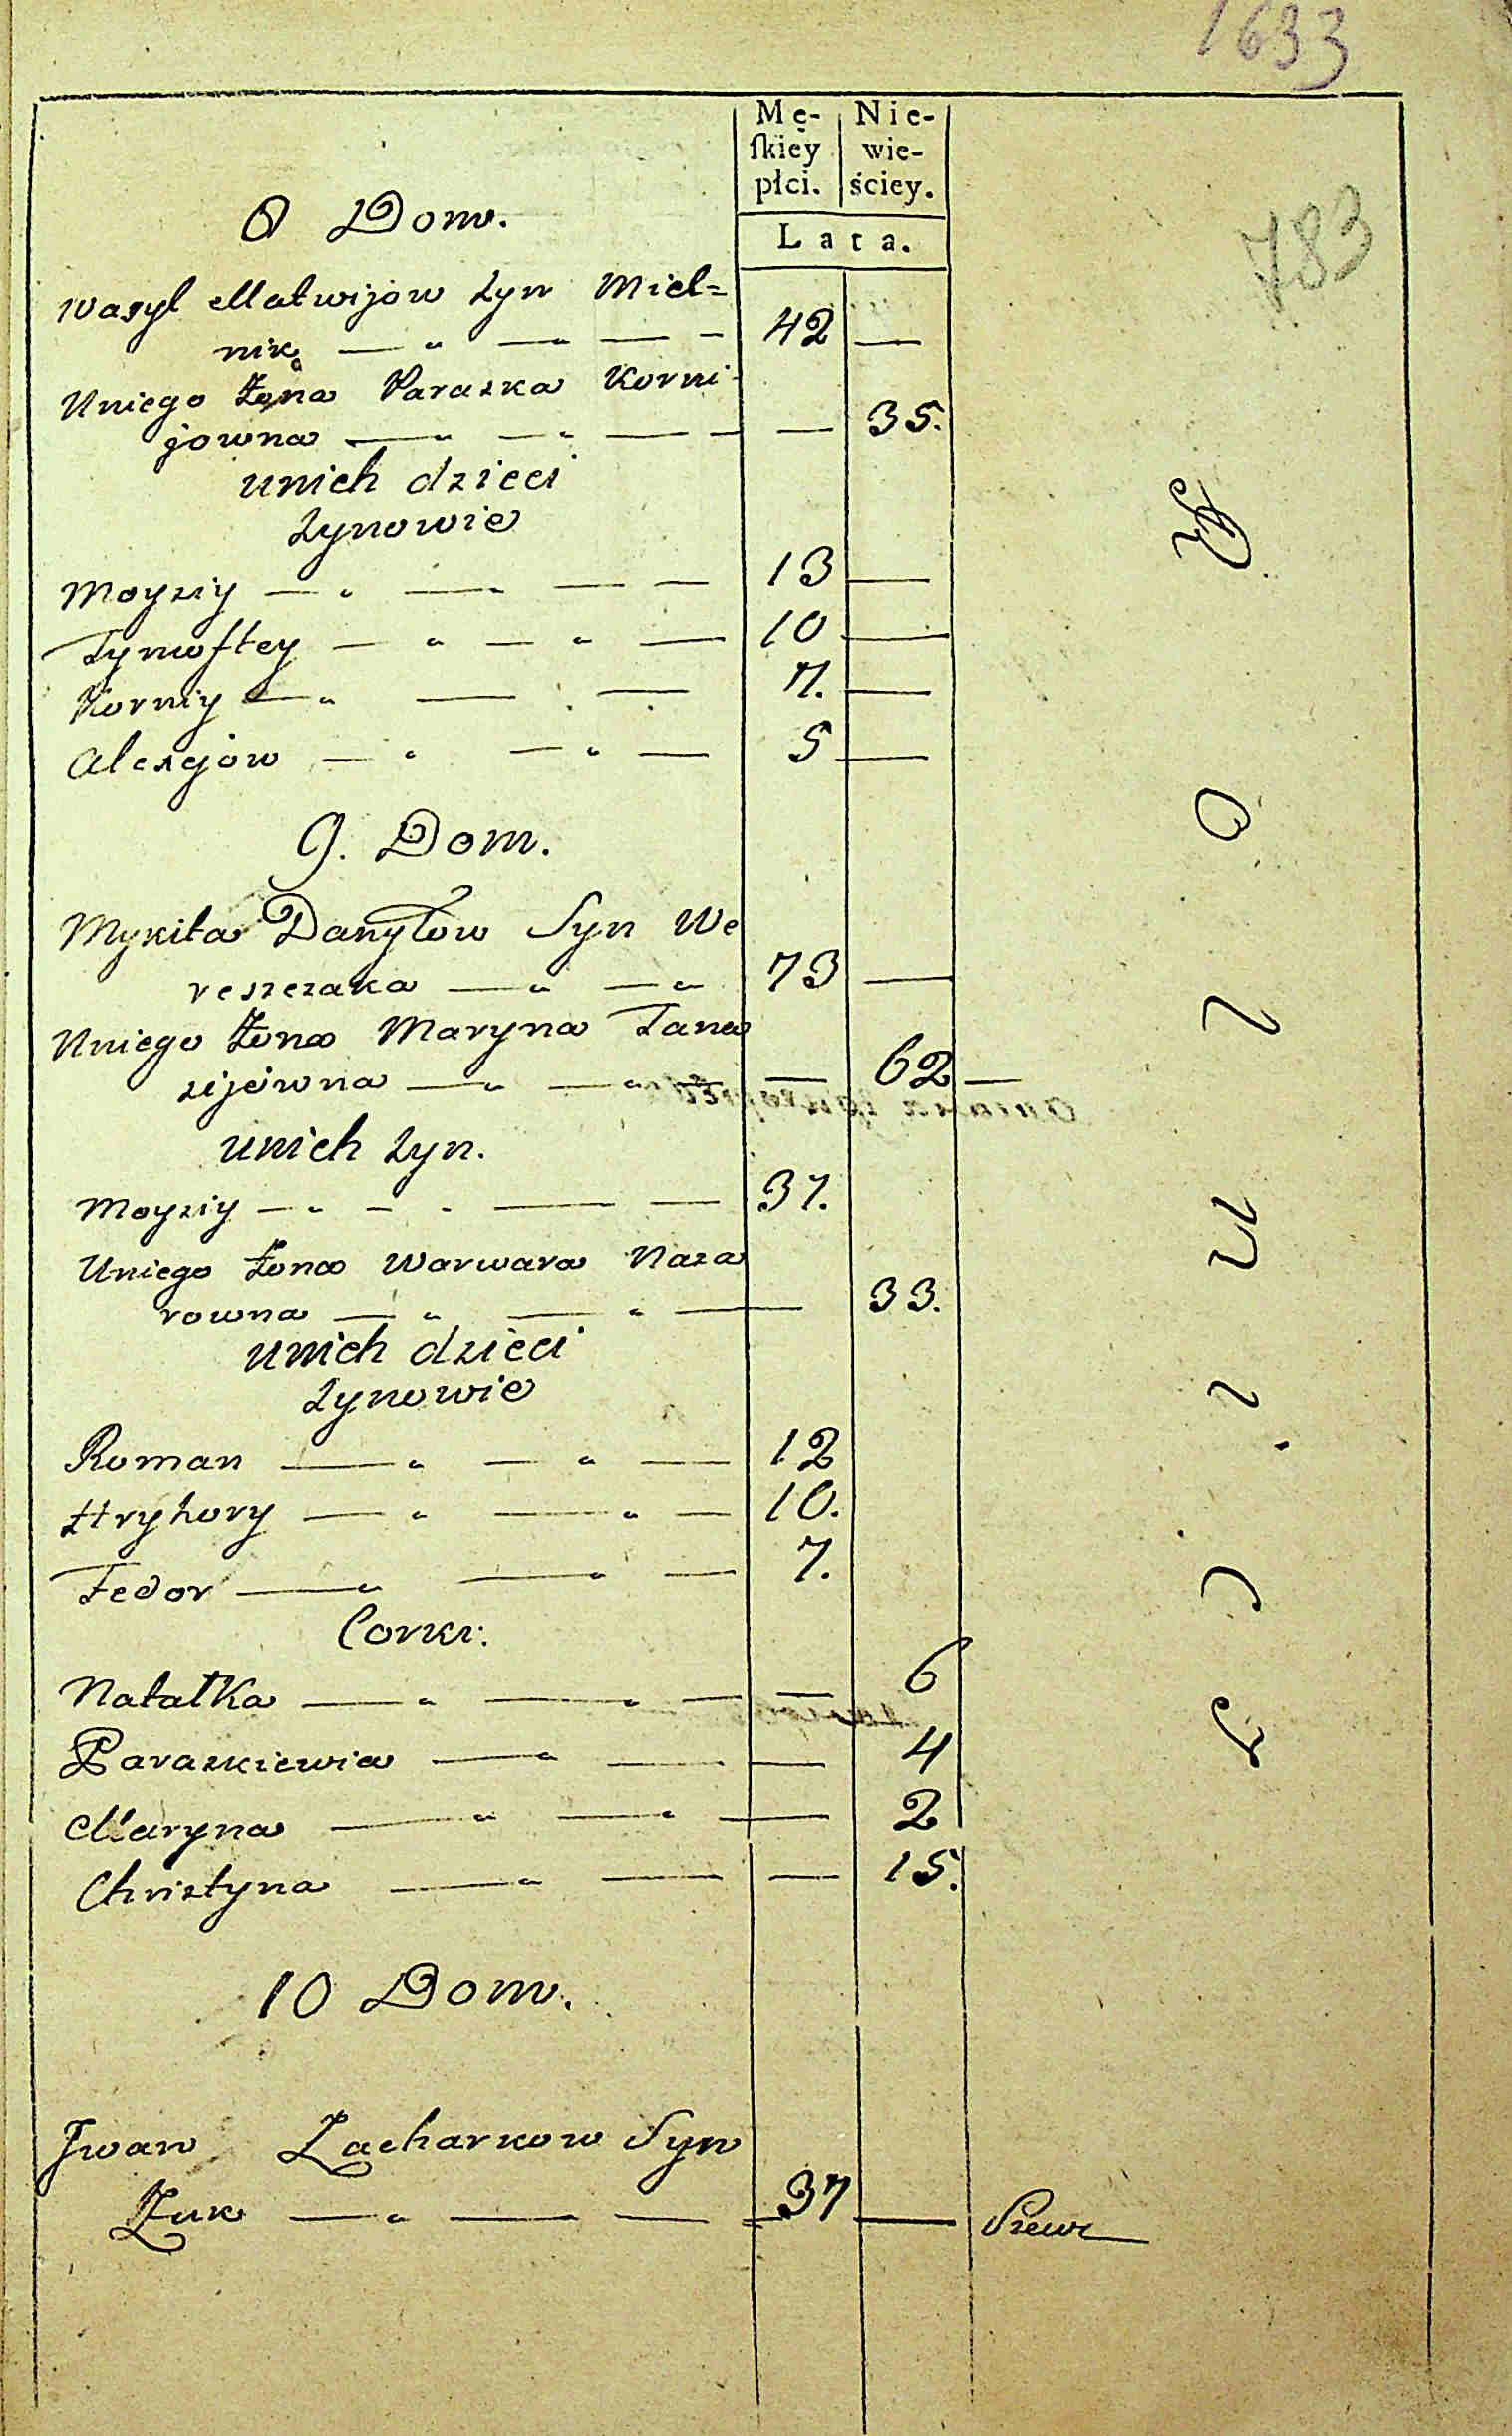 1633
Mę- Nie-
ſkiéy wie-
płci. ściey.
Lata.
783
8 Dom.
Wasyl Matwijow Syn Miel=
nik 42 —
Uniego Żona Paraska Korni-
jowna — 35.
unich dzieci
Synowie
Moysiy 13 —
Tymoftey 10 —
Korniy 7. —
Alexejow 5 —
9. Dom.
Mykita Danyłow Syn We
reszczaka 73 —
Uniego Żona Maryna Tana
sijewna — 62 —
unich Syn.
Moysiy 37.
Uniego Żona Warwara Naza
rowna — 33.
unich dzieci
Synowie
Roman 12
Hryhory 10.
Fedor 7.
Corki:
Natałka — 6
Paraskiewia — 4
Maryna — 2
Christyna — 15.
10 Dom.
Jwan Zacharkow Syn
Żuk 37 — Szewc
R o l n i c y